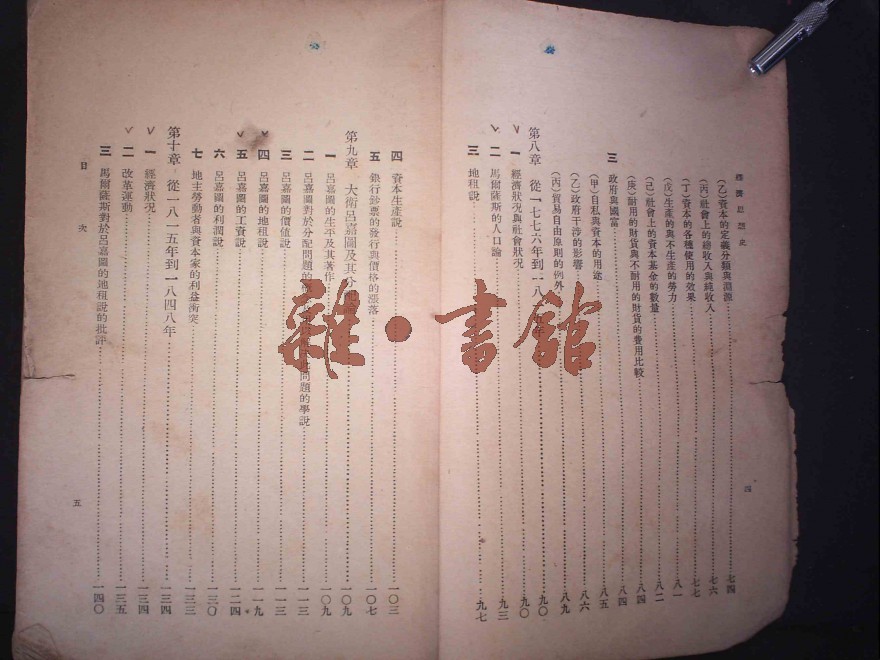 經濟思想史
(乙)資本的定義分類與淵源……七四
(丙)社會上的總收入與純收入……七六
(丁)資本的各種使用的效果……七七
(戊)生產的與不生產的勞力……八一
(己)社會上的資本基金的數量……八二
(庚)耐用的財貨與不耐用的財貨的費用比較……八四
三 政府與國富……八四
(甲)自私與資本的用途……八五
(乙)政府干涉的影響……八六
(丙)貿易自由原則的例外……八九
第八章 從一七七六年到一八 年……九〇
一 經濟狀況與社會狀況……九〇
二 馬爾薩斯的人口論……九三
三 地租說……九七
四
四 資本生產說……一〇三
五 銀行鈔票的發行與價格的漲落……一〇七
第九章 大衛呂嘉圖及其分配……一〇九
一 呂嘉圖的生平及其著作……一〇九
二 呂嘉圖對於分配問題的 問題的學說……一一三
三 呂嘉圖的價值說……一一三
四 呂嘉圖的地租說……一一九
五 呂嘉圖的工資說……一二四
六 呂嘉圖的利潤說……一三〇
七 地主勞動者與資本家的利益衝突……一三三
第十章 從一八一五年到一八四八年……一三四
一 經濟狀況……一三四
二 改革運動……一三五
三 馬爾薩斯對於呂嘉圖的地租說的批評……一四〇
目次
五
雜·書館